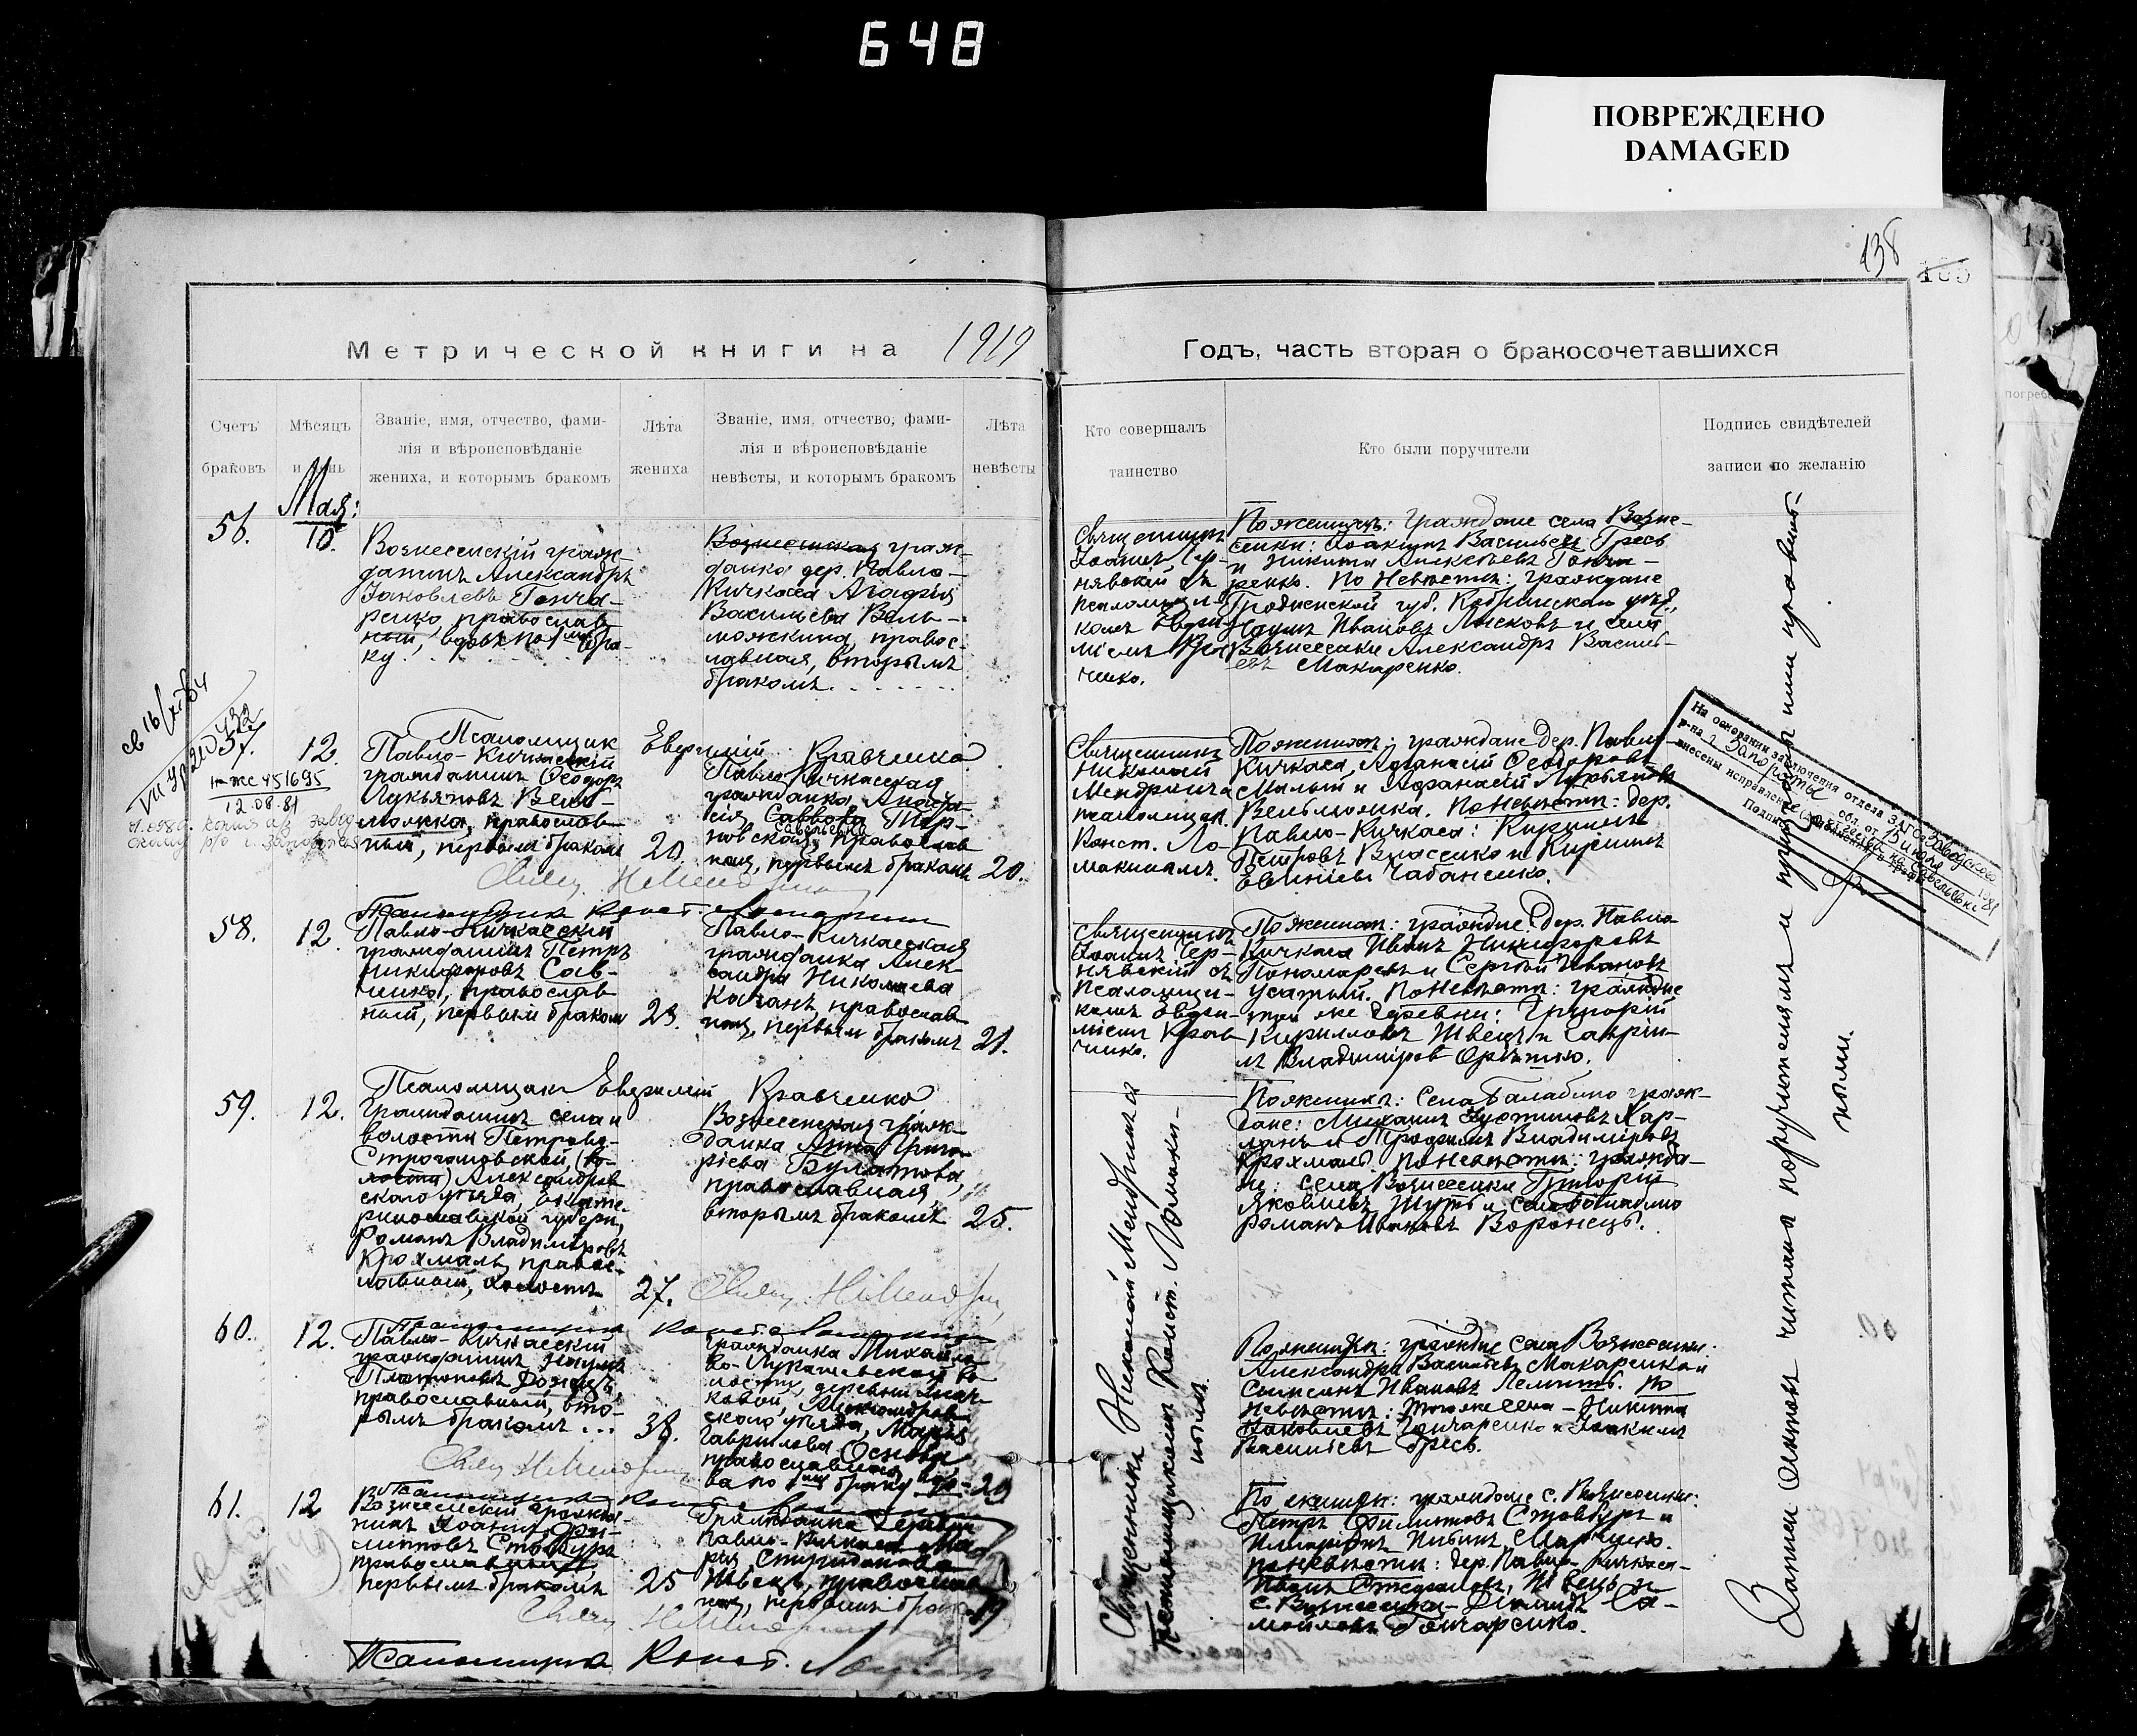 648
ПОВРЕЖДЕНО
DAMAGED
138
Метрической книги на 1919
Годъ, часть вторая о бракосочетавшихся
Счетъ браковъ
Мѣсяцъ и день
Званіе, имя, отчество, фами-
лія и вѣроисповѣданіе
жениха, и которымъ бракомъ
Лѣта
жениха
Званіе, имя, отчество, фами-
лія и вѣроисповѣданіе
невѣсты, и которымъ бракомъ
Лѣта
невѣсты
Кто совершалъ
таинство
Кто были поручители
Подпись свидѣтелей
записи по желанію
Мая:
56.
10.
Вознесенскій граж-
данинъ Александръ
Іаковлевъ Гонча-
ренко, православ-
ный, вдовъ по 1 бра-
ку.
Вознесенская граж-
данка дер. Павло-
Кичкаса Агафія
Васильева Вель-
можкина, правос-
лавная, вторымъ
бракомъ.
Священникъ
Іоаннъ Чер-
нявскій съ
псаломщи-
комъ Евфи-
міемъ Крав
ченко.
По женихѣ: граждане села Возне-
сенки: Іоакимъ Васильевъ Гресь
и Никита Алексѣевъ Гонча-
ренко. По Невѣстѣ: граждане
Гродненской губ. Кобринскаго уѣзд.,
Наумъ Ивановъ Лысковъ и села
Вознесенки Александръ Василь-
евъ Макаренко.
Псаломщик Евфимій Кравченко
57.
12.
Павло-Кичкасскій
гражданинъ Ѳеодоръ
Лукьяновъ Вель-
можка, православ-
ный, первымъ бракомъ
20.
Павло-Кичкасская
гражданка Анаста-
сія Саввова Тер-
новская, православ
Савельевна
ная, первымъ бракомъ
20.
Священникъ
Николай
Мендрина
псаломщик.
Конст. Ло-
макинымъ.
По женихѣ: граждане дер. Павло
Кичкаса, Аѳанасій Ѳеодоровъ
Малый и Аѳанасій Лукьяновъ
Вельможка. По Невѣстѣ: дер.
Павло-Кичкаса: Кириллъ
Петровъ Власенко и Кириллъ
Евѳиміевъ Чабаненко.
1-ЖС 451695
12.08.81
58.
12.
Павло-Кичкасскій
гражданинъ Петръ
Никифоровъ Сав-
ченко, православ-
ный, первымъ бракомъ
23.
Павло-Кичкасская
гражданка Алек-
сандра Николаева
Качанъ, православ
ная, первымъ бракомъ
21.
Священникъ
Іоаннъ Чер-
нявскій съ
псаломщи-
комъ Евфи-
міемъ Крав
ченко.
По женихѣ: граждане дер. Павло
Кичкаса Иванъ Никифоровъ
Пономаревъ и Сергѣй Ивановъ
Усатый. По Невѣстѣ: граждане
той же деревни: Григорій
Кирилловъ Швецъ и Гаврі-
илъ Владиміров Орѣшко.
Псаломщик Евфимій Кравченко
59.
12.
Гражданинъ села и
волости Петрово-
Строгановской, (во-
лости) Александров
скаго уѣзда, Екате-
ринославской губерн,
Романъ Владиміровъ
Крохмаль, правос-
лавный, холостъ
27.
Вознесенская граж-
данка Анна Григо-
ріева Булатова,
православная,
вторымъ бракомъ
25.
По женихѣ: Села Балабино граж-
дане: Михаилъ Іустиновъ Кар-
ланъ и Трофимъ Владиміровъ
Крохмаль. По Невѣстѣ: гражда-
не: села Вознесенки Григорій
Яковлевъ Шутъ и села Балабино
Романъ Ивановъ Воронецъ.
60.
12.
Павло-Кичкасскій
гражданинъ Наумъ
Платоновъ
православный, вто-
рымъ бракомъ
38.
гражданка Михайло-
во-Лукашевской во
лости, деревни
Александров-
скаго уѣзда, Марія
Гаврилова
православная, вдо-
ва по браку
29
По женихѣ: граждане села Вознесенки:
Александръ Васильевъ Макаренко и
Симеонъ Ивановъ По
Невѣстѣ: того же села - Никита
Іаковлевъ Гончаренко и Іоакимъ
Васильевъ Гресь.
61.
12
Вознесенскій гражда-
нинъ Іоаннъ Фи-
липповъ Стовбуръ
православный
первымъ бракомъ
25
Гражданка деревни
Павло-Кичкаса Ма-
рія Спиридонова
Швецъ, православ
ная, первымъ брак.
19
По женихѣ: граждане с. Вознесенки:
Петръ Филипповъ Стовбуръ и
Марченко.
по невѣстѣ: дер. Павло-Кичкаса-
Иванъ Стефановъ Швецъ и
с. Вознесенки - Са-
мойловъ Гончаренко.
Псаломщикъ Конст. Ломакин
Священникъ Николай Мендрина
Псаломщикомъ Конст. Ломаки-
нымъ.
Запись актовъ читана поручителямъ и признана ими правиль-
ными.
На основании заключения отдела ЗАГС Заводского
р-на г. Запорожья обл. от 1981
внесены исправления (дополнения) в графы
Подпись